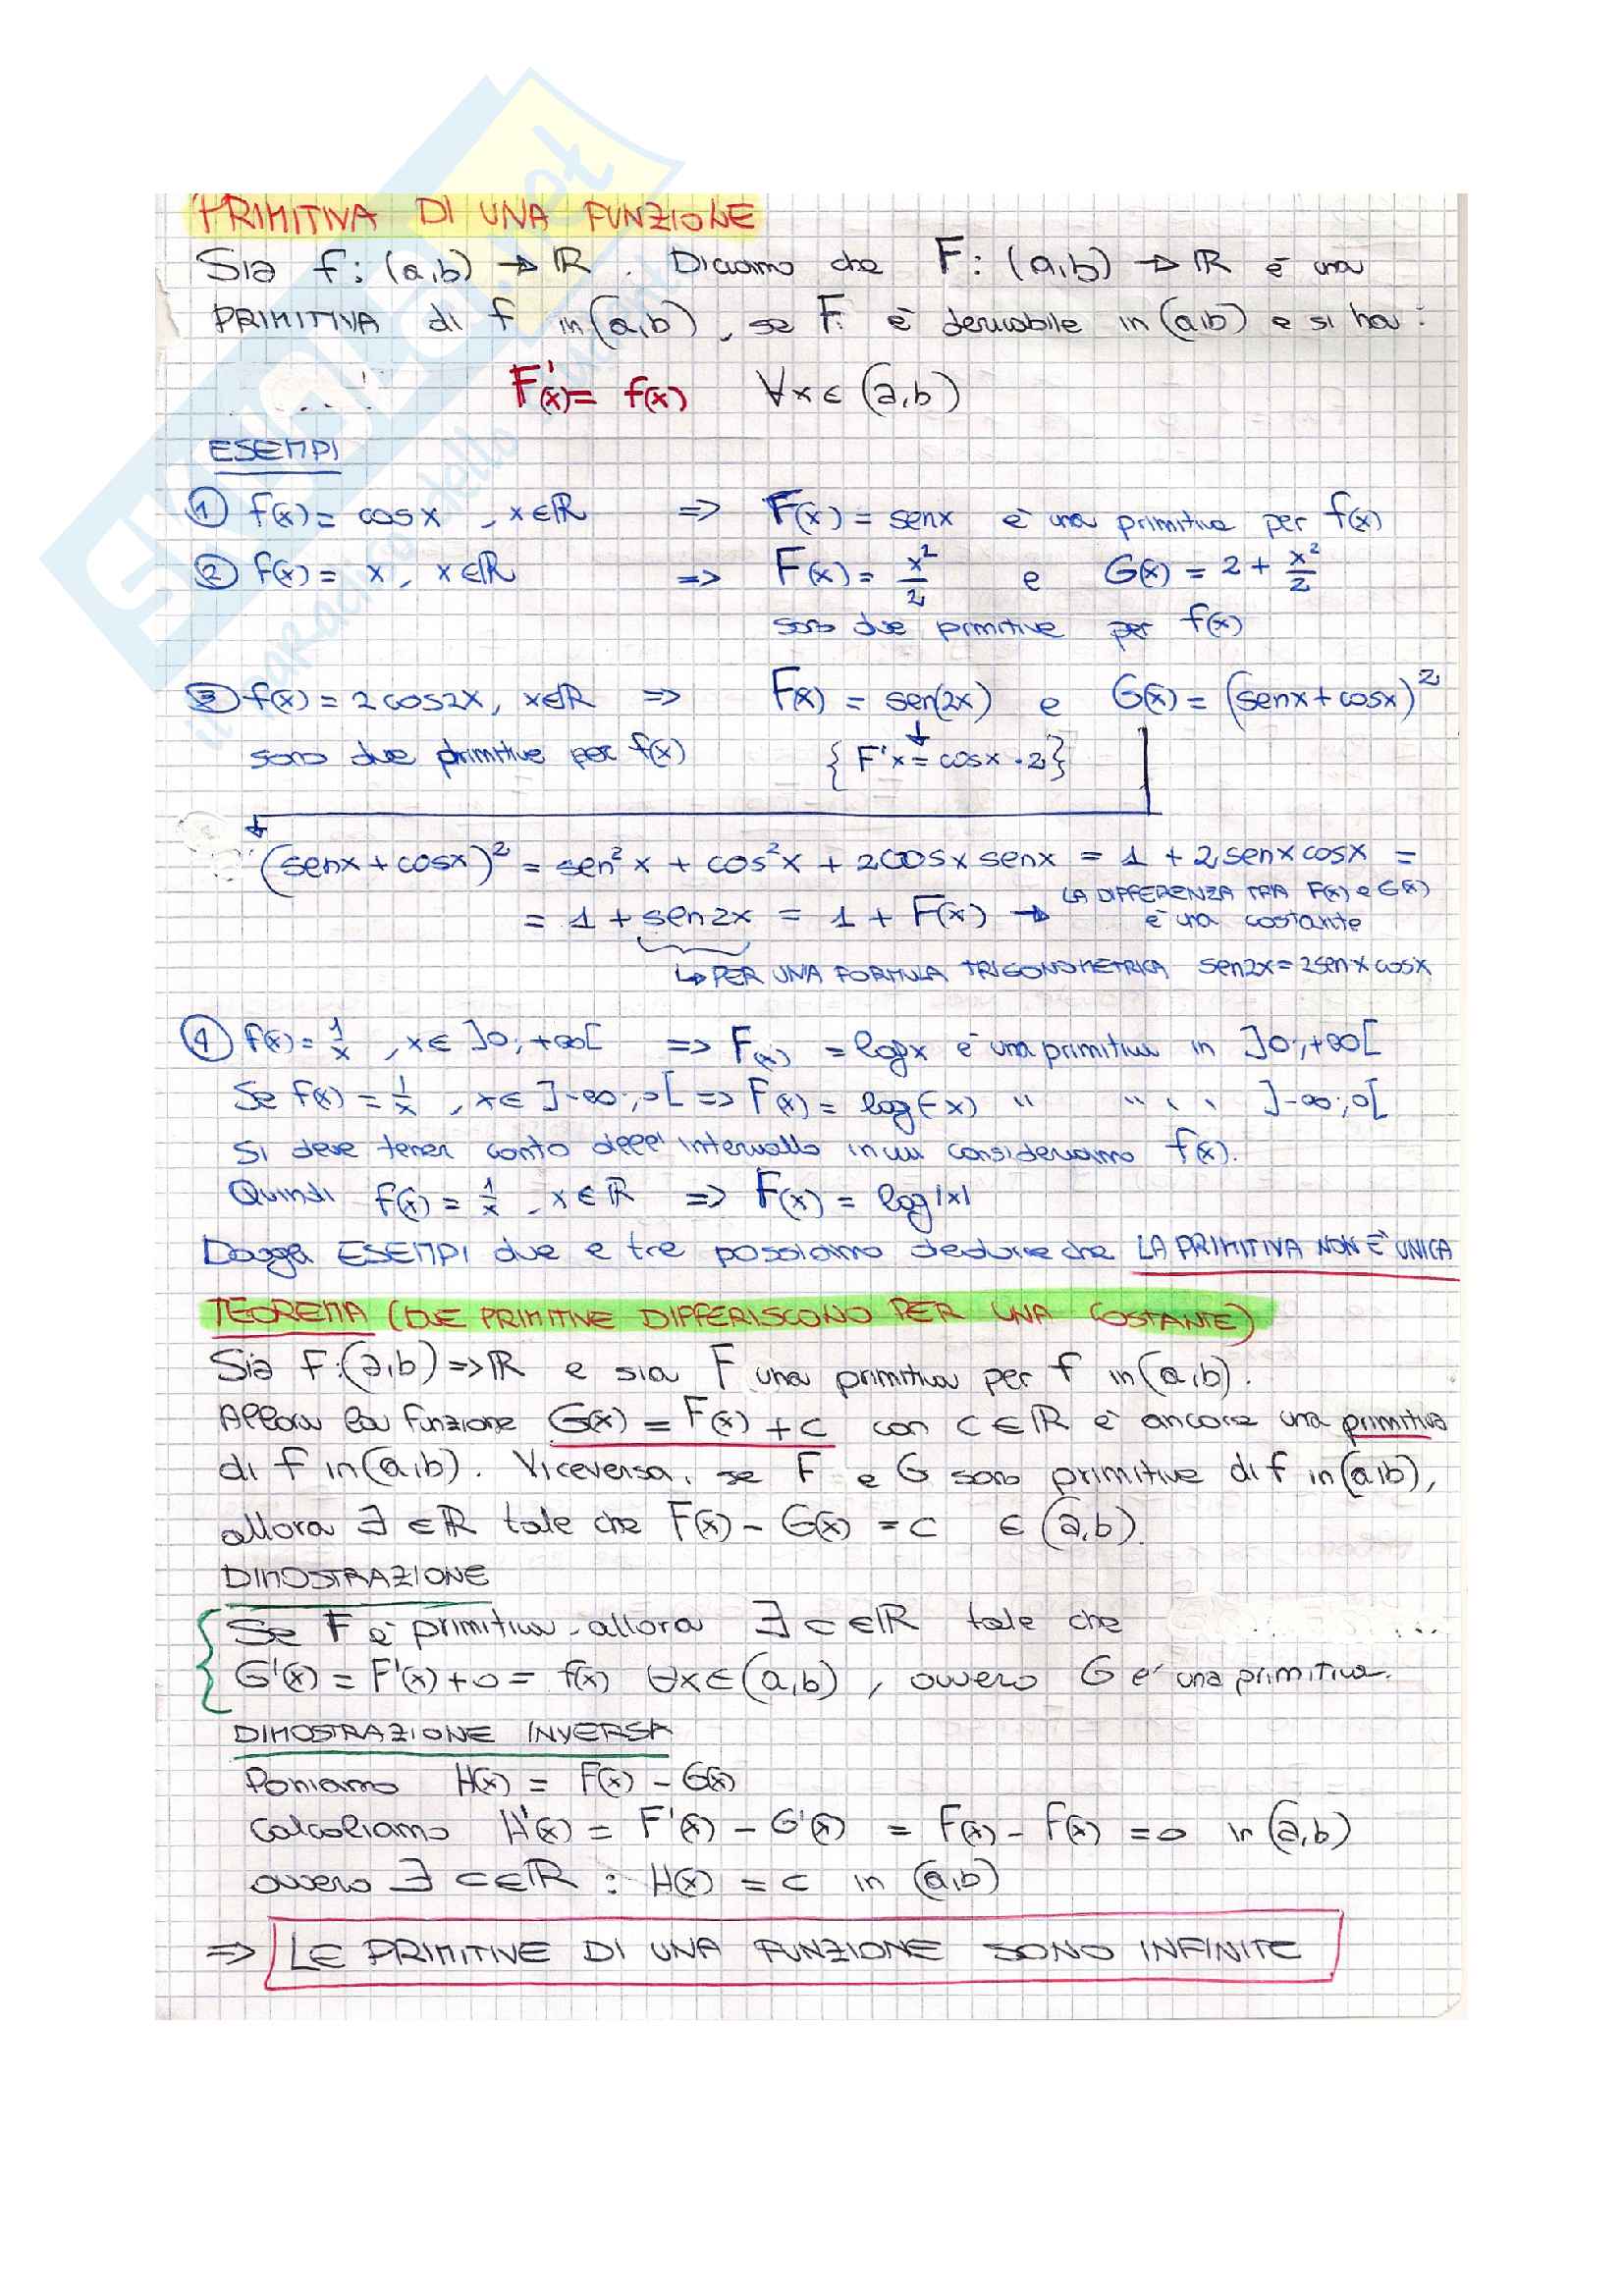 PRIMITIVA DI UNA FUNZIONE
Sia f: (a,b) → ℝ. Diciamo che F: (a,b) → ℝ è una
PRIMITIVA di f in (a,b), se F è derivabile in (a,b) e si ha:
F'(x) = f(x) ∀x ∈ (a,b)
ESEMPI
① f(x) = cosx, x∈ℝ => F(x) = senx è una primitiva per f(x)
② f(x) = x, x∈ℝ => F(x) = x²/2 e G(x) = 2 + x²/2
sono due primitive per f(x)
③ f(x) = 2cos2x, x∈ℝ => F(x) = sen(2x) e G(x) = (senx+cosx)²
sono due primitive per f(x) {F'x = cosx · 2}
(senx + cosx)² = sen²x + cos²x + 2cosx senx = 1 + 2senxcosx =
= 1 + sen2x = 1 + F(x) → LA DIFFERENZA TRA F(x) e G(x)
è una costante
↳ PER UNA FORMULA TRIGONOMETRICA sen2x = 2senx cosx
④ f(x) = 1/x, x∈ ]0;+∞[ => F(x) = logx è una primitiva in ]0;+∞[
Se f(x) = 1/x, x∈ ]-∞;0[ => F(x) = log(-x) " " " ]-∞;0[
Si deve tener conto dell'intervallo in cui consideriamo f(x).
Quindi f(x) = 1/x, x∈ℝ => F(x) = log|x|
Dagli ESEMPI due e tre possiamo dedurre che LA PRIMITIVA NON È UNICA
TEOREMA (DUE PRIMITIVE DIFFERISCONO PER UNA COSTANTE)
Sia f:(a,b) => ℝ e sia F una primitiva per f in (a,b).
Allora la funzione G(x) = F(x) + c con c∈ℝ è ancora una primitiva
di f in (a,b). Viceversa, se F e G sono primitive di f in (a,b),
allora ∃ ∈ℝ tale che F(x) - G(x) = c ∈ (a,b).
DIMOSTRAZIONE
Se F è primitiva allora ∃ c∈ℝ tale che
G'(x) = F'(x) + 0 = f(x) ∀x∈(a,b), ovvero G è una primitiva.
DIMOSTRAZIONE INVERSA
Poniamo H(x) = F(x) - G(x)
Calcoliamo H'(x) = F'(x) - G'(x) = f(x) - f(x) = 0 in (a,b)
ovvero ∃ c∈ℝ : H(x) = c in (a,b)
=> LE PRIMITIVE DI UNA FUNZIONE SONO INFINITE